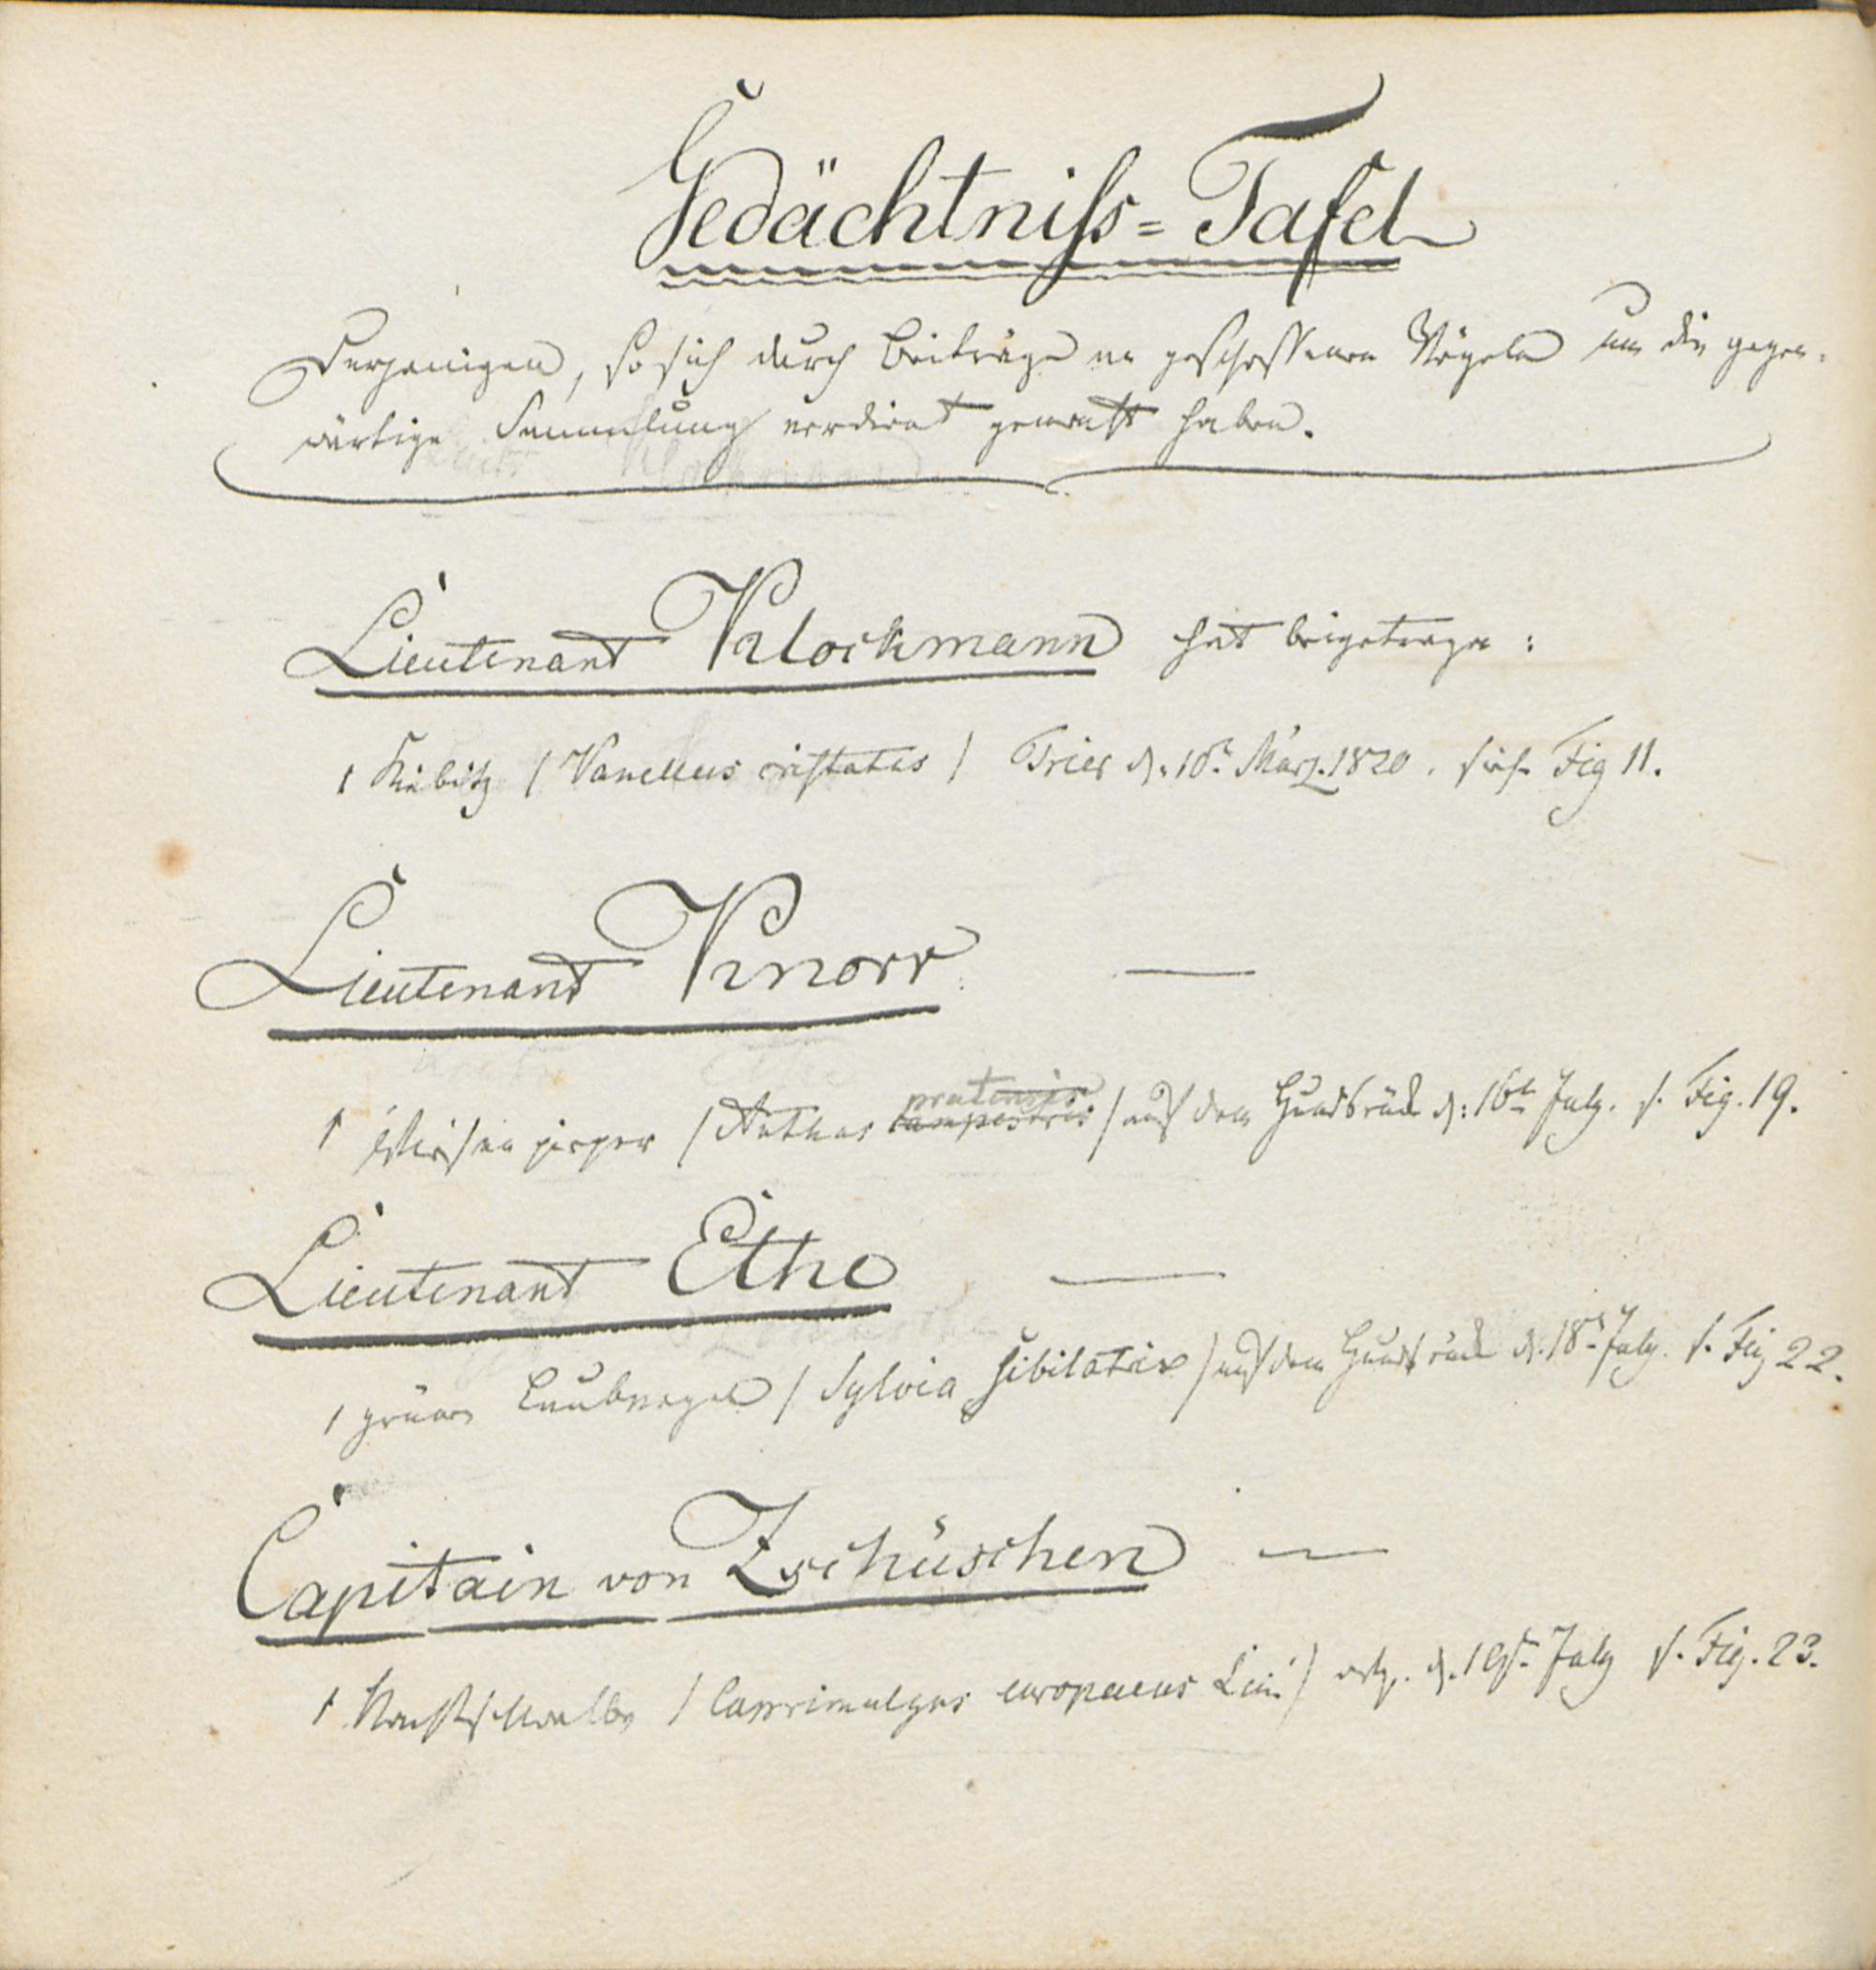 Gedächtniſs=Tafel
Derjenigen, so sich durch Beiträge an geschossenen Vögeln um die gegen-
wärtige Sammlung verdient gemacht haben.
Lieutenant Klockmann hat beigetragen:
1 Kiebitz / Vanellus cristatus / Trier d. 10t März. 1820. sieh Fig 11.
Lieutenant Knorr —
1 Wiesenpieper / Anthus campestris pratensis / auf dem Hundsrück d: 16t July. s. Fig. 19.
Lieutenant Ethe —
1 grüner Laubvogel / Sylvia sibilatrix / auf dem Hundsrück d. 18t July. s. Fig 22.
Capitain von Zschüschen —
1 Nachtschwalbe / Caprimulgus europaeus Lin: / d. 19t July s. Fig. 23.